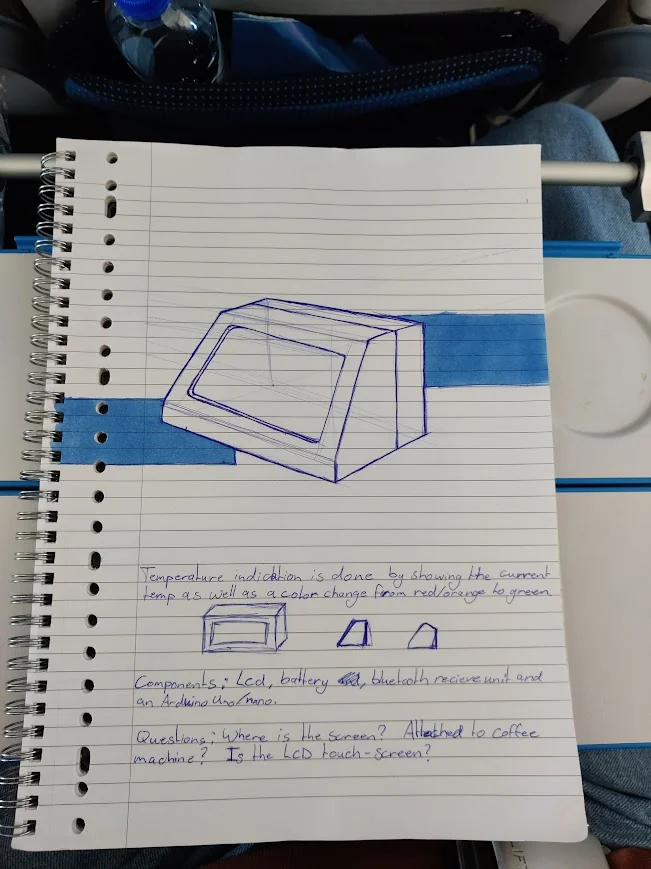 Temperature indication is done by showing the current
temp as well as a color change from red/orange to green
Components: Lcd, battery, bluetooth recieve unit and
an Arduino Uno/nano.
Questions: Where is the screen? Attached to coffee
machine? Is the LCD touch-screen?